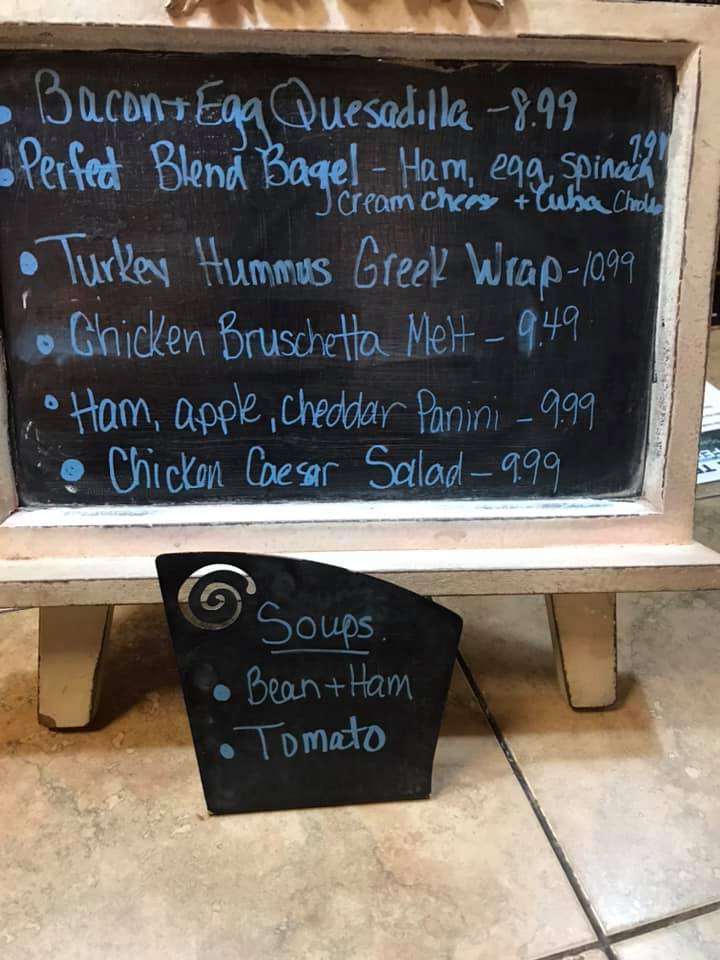 • Bacon + Egg Quesadilla - 8.99
• Perfect Blend Bagel - Ham, egg, spinach 7.99
cream cheese + Cuba Chedda
• Turkey Hummus Greek Wrap - 10.99
• Chicken Bruschetta Melt - 9.49
• Ham, apple, cheddar Panini - 9.99
• Chicken Caesar Salad - 9.99
Soups
• Bean + Ham
• Tomato